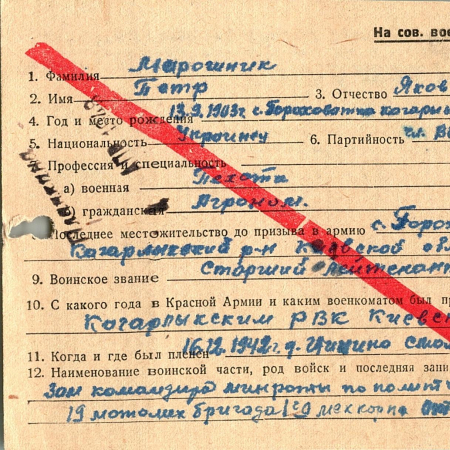 На сов. вое
1. Фамилия Мирошник
2. Имя Петр 3. Отчество Яков
4. Год и место рождения 13.9.1903г с. Гороховатка кагарл
5. Национальность Украинец 6. Партийность чл. В
7. Профессия и специальность
а) военная Пехота
б) гражданская Агроном.
8. Последнее местожительство до призыва в армию с. Горох
Кагарлыкский р-н Киевской обл
9. Воинское звание Старший лейтенант
10. С какого года в Красной Армии и каким военкоматом был пр
Кагарлыкским РВК Киевс
11. Когда и где был пленен 16.12.1942г. д.
12. Наименование воинской части, род войск и последняя зани
Зам командира минроты по полит ч
19 мотомех бригада 1го мехкорпа